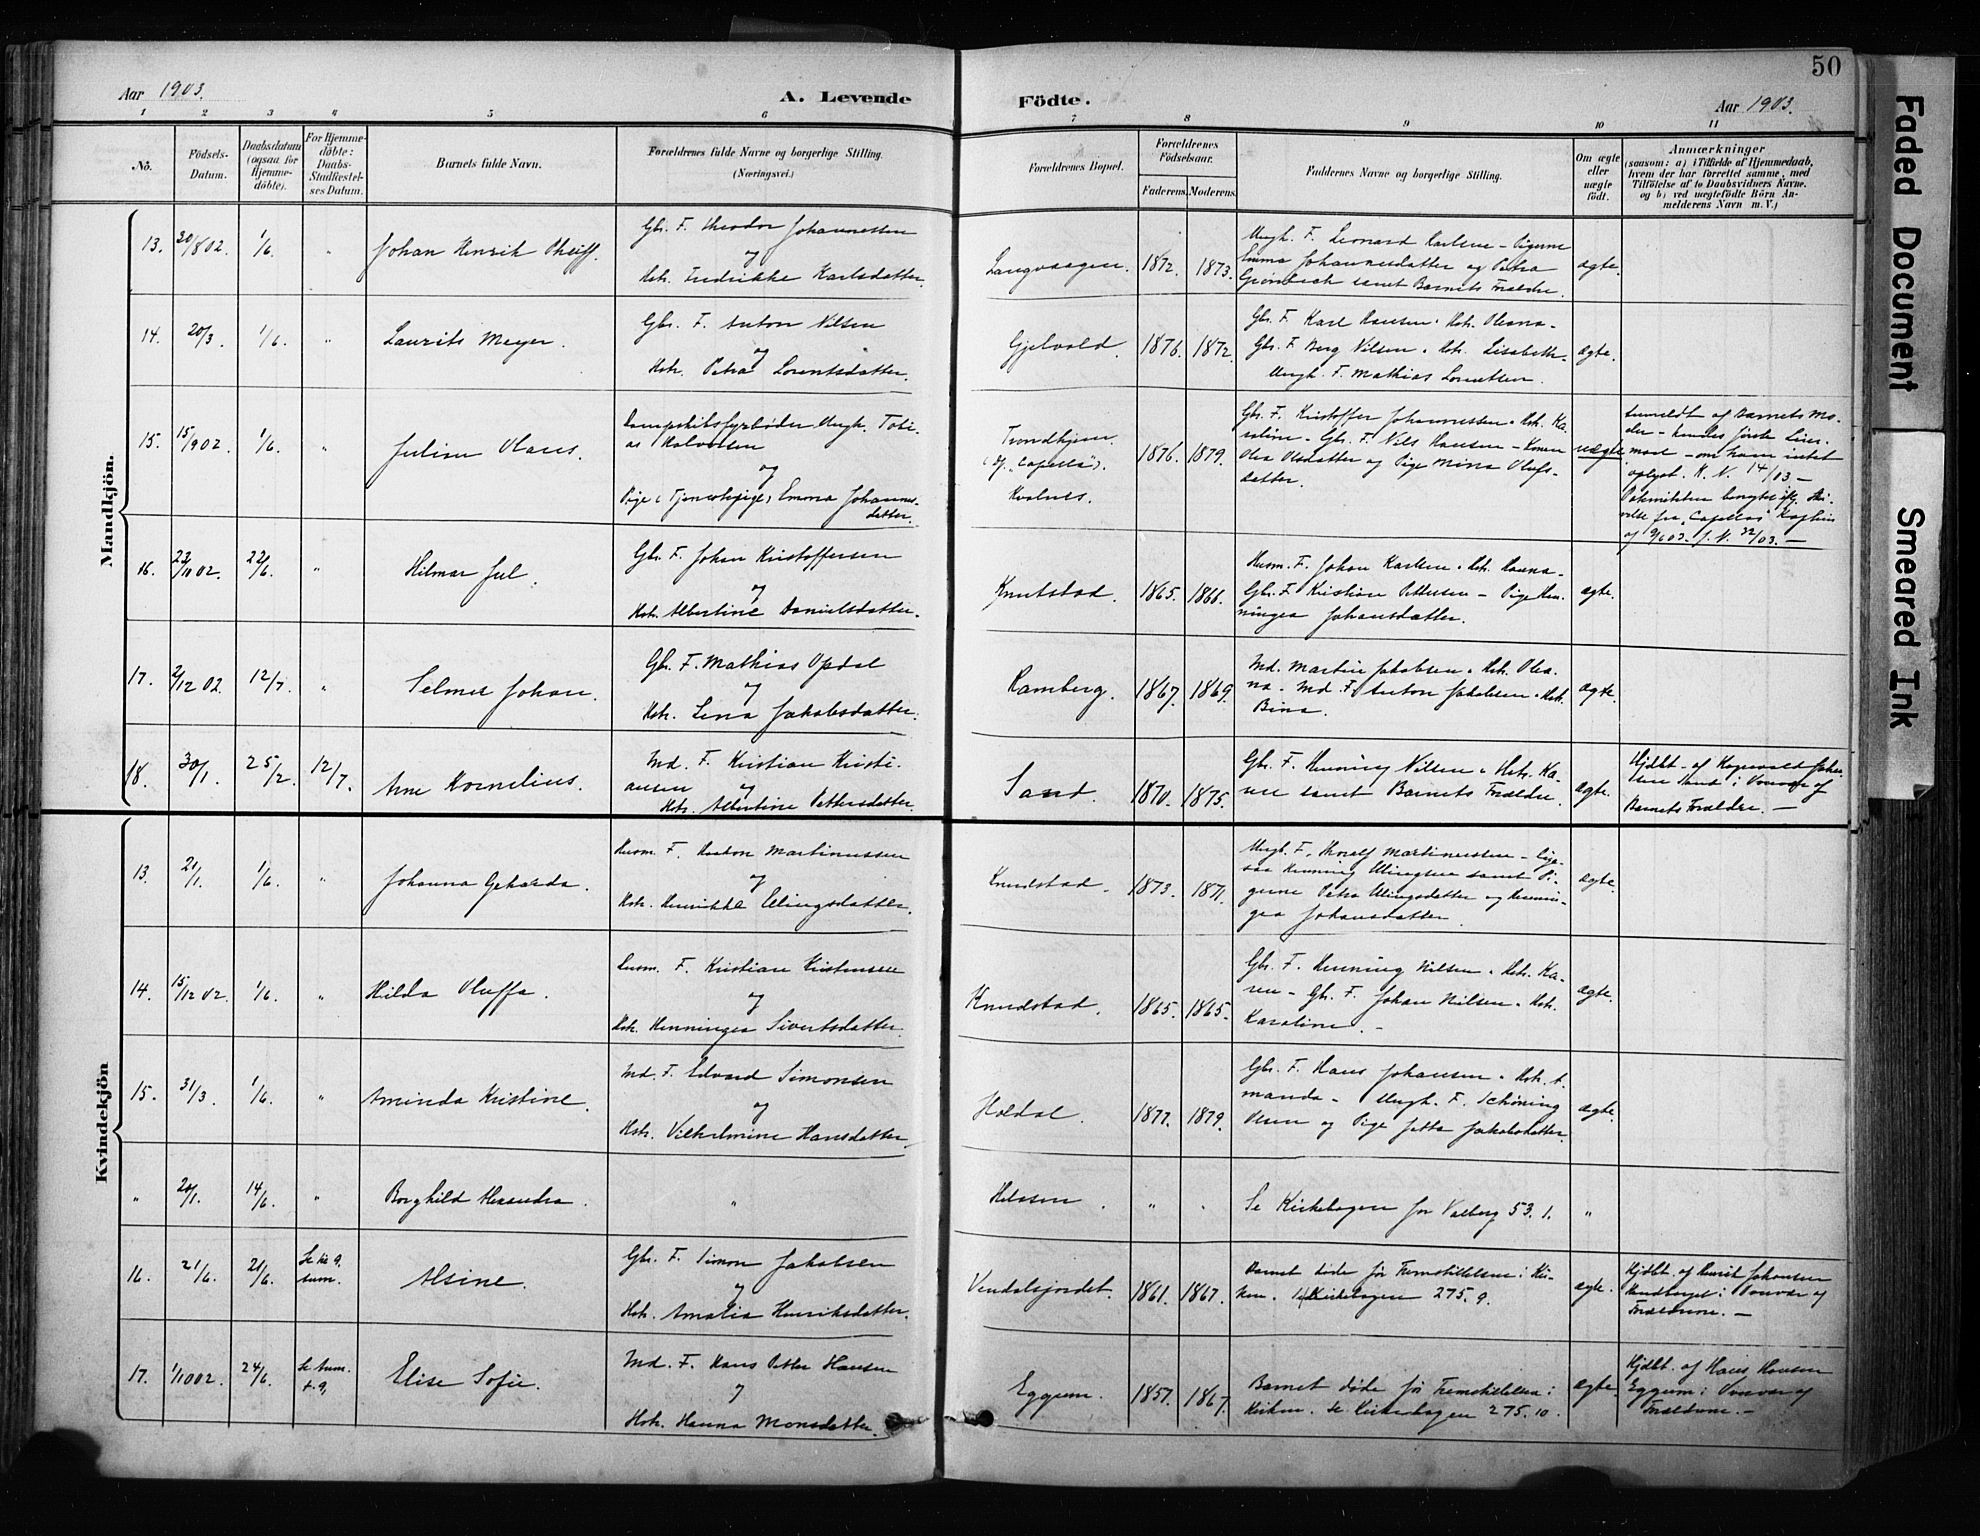 50
Aar 1903.
A. Levende Födte.
Aar 1903.
1 2 3 4 5 6 7 8 9 10 11
Nô.
Födsels-
Datum.
Daabsdatum
(ogsaa for
Hjemme-
döbte).
For Hjemme-
döbte:
Daabs-
Stadfæstel-
ses Datum.
Barnets fulde Navn.
Forældrenes fulde Navne og borgerlige Stilling.
(Næringsvei.)
Forældrenes Bopæl.
Forældrenes
Födselsaar.
Faderens. Moderens.
Faddernes Navne og borgerlige Stilling.
Om ægte
eller
uægte
födt.
Anmærkninger
(saasom: a) i Tilfælde af Hjemmedaab,
hvem der har forrettet samme, med
Tilföielse af to Daabsvidners Navne.
og b) ved uægtefödte Börn An-
melderens Navn m. V.)
Mandkjön.
13. 20/8 02. 1/6. " Johan Henrik
Gbr. F. Theodor Johannessen
og
Hstr. Fredrikke Karlsdatter.
Langvaagen. 1872. 1873.
Ungk. F. Leonard Karlsen - Pigerne
Emma Johannesdatter og Petra
Grönbech samt Barnets Forældre.
ægte.
14. 20/3. 1/6. " Laurits Meyer.
Gbr. F. Anton Nilsen
og
Hstr. Petra Lorentsdatter.
Gjelvold. 1876. 1872.
Gbr. F. Karl Hansen. Hstr. Oleana -
Gbr. F. Berg Nilsen. Hstr. Lisabeth -
Ungk. F. Mathias Lorentsen.
ægte.
15. 15/9 02. 1/6. " Julian Olaus.
Dampskibsfyrböder Ungk. Tobi-
as Halvorsen
og
Pige (Tjenestepige) Emma Johannes-
datter.
Trondhjem
(Df. "Capella").
Kvalnes.
1876. 1879.
Gbr. F. Kristoffer Johannessen. Hstr. Ka-
roline - Gbr. F. Nils Hansen - Konen
Olea Olsdatter og Pige Mina Olufs-
datter.
uægte
Anmeldt af Barnets Mo-
der - hendes förste Leier-
maal - om ham intet
oplyst. K. N. 14/03 -
fra "Capellas" Kaptein
af 9/6 03. J. N. 32/03. -
16. 23/11 02. 22/6. " Hilmar Jul.
Gbr. F. Johan Kristoffersen
og
Hstr. Albertine Danielsdatter.
Knutstad. 1865. 1866.
Husm. F. Johan Karlsen. Hstr. Hanna -
Gbr. F. Kristian Pettersen - Pige Hen-
ningea Johansdatter.
ægte.
17. 2/12 02. 12/7. " Selmer Johan.
Gbr. F. Mathias Opdal
og
Hstr. Lena Jakobsdatter.
Ramberg. 1867. 1869.
Md. Martin Jakobsen. Hstr. Olea-
na. Md. F. Anton Jakobsen. Hstr.
Bina.
ægte.
18. 30/1. 25/2. 12/7. Arne Kornelius.
Md. F. Kristian Kristi-
ansen og
Hstr. Albertine Pettersdatter.
Sand. 1870. 1875.
Gbr. F. Henning Nilsen. Hstr. Ka-
ren samt Barnets Forældre.
ægte.
Hjdbt. af Hagevald Johan-
sen Sand i Overvær af
Barnets Forældre. -
Kvindekjön
13. 21/1. 1/6. " Johanna Geharda.
Husm. F. Haakon Martinussen
og
Hstr. Henrikke Ellingsdatter.
Knudstad. 1873. 1871.
Ungk. F. Thoralf Martinussen - Lige-
saa Henning Ellingsen samt Pi-
gerne Petra Ellingsdatter og Hennin-
gea Johansdatter
ægte.
14. 15/12 02. 1/6. " Hilda Oluffa.
Husm. F. Kristian Kristensen
og
Hstr. Henningea Sivertsdatter.
Knudstad. 1865. 1865.
Gbr. F. Henning Nilsen. Hstr. Ka-
ren - Gbr. F. Johan Nilsen. Hstr.
Karoline. -
ægte.
15. 31/3. 1/6. " Aminda Kristine.
Md. F. Edvard Simonsen
og
Hstr. Vilhelmine Hansdatter.
Holdal. 1877. 1879.
Gbr. F. Hans Johansen. Hstr. A-
manda - Ungk. F. Schöning
Olsen og Pige Jetta Jakobsdatter.
ægte.
" 20/1. 14/6. " Borghild Alexandra. "
Helosen. " " Se Kirkebogen for Valberg 53. 1. "
16. 21/6. 21/6. Se Kb 9.
Anm.
Alsine.
Gbr. F. Simon Jakobsen
og
Hstr. Amalia Henriksdatter.
Vendalsjordet. 1861. 1867.
Barnet döde för Fremstillelsen i Kir-
ken. Se Kirkebogen 275. 9.
ægte.
Hjdbt. af Henrik Johansen
i Overvær af
Forældrene. -
17. 1/10 02. 24/6. Se Anm.
+ 9,
Elise Sofie.
Md. F. Hans Petter Hansen
og
Hstr. Hanna Monsdatter.
Eggum. 1857. 1867.
Barnet döde för Fremstillelsen i
Kirken. Se Kirkebogen 275. 10.
ægte.
Hjdbt. af Hans Hansen
Eggum i Overvær af
Forældrene. -
Faded Document
Smeared Ink